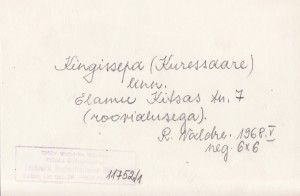 Kingissepa (Kuressaare)
linn.
Elamu Kitsas tn. 7
(roosialusega).
R. Valdre. 1968.V
neg. 6x6
11752/1